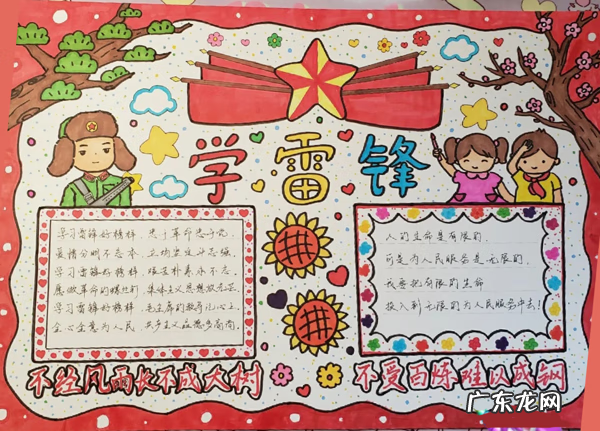 学雷锋
学习雷锋好榜样 忠于革命忠于党
爱憎分明不忘本 立场坚定斗志强
学习雷锋好榜样 艰苦朴素永不忘
愿做革命的螺丝钉 集体主义思想放光芒
学习雷锋好榜样 毛主席的教导记心上
全心全意为人民 共产主义品德多高尚
人的生命是有限的,
可是为人民服务是无限的,
我要把有限的生命
投入到无限的为人民服务中去!
不经风雨长不成大树
不受百炼难以成钢
广东龙网